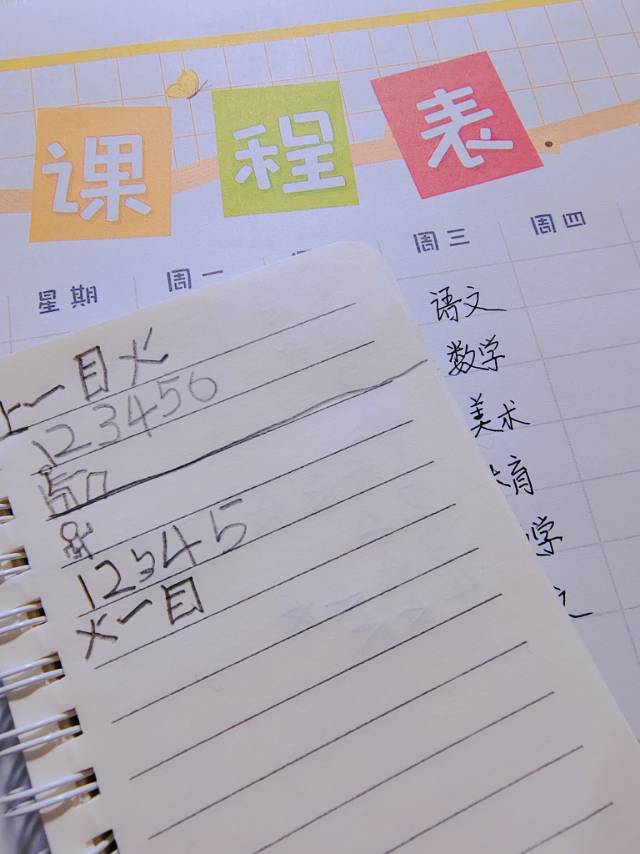 课程表
星期 周一 周三 周四
语文
数学
美术
育
学
上一目火
123456
12345
火一目